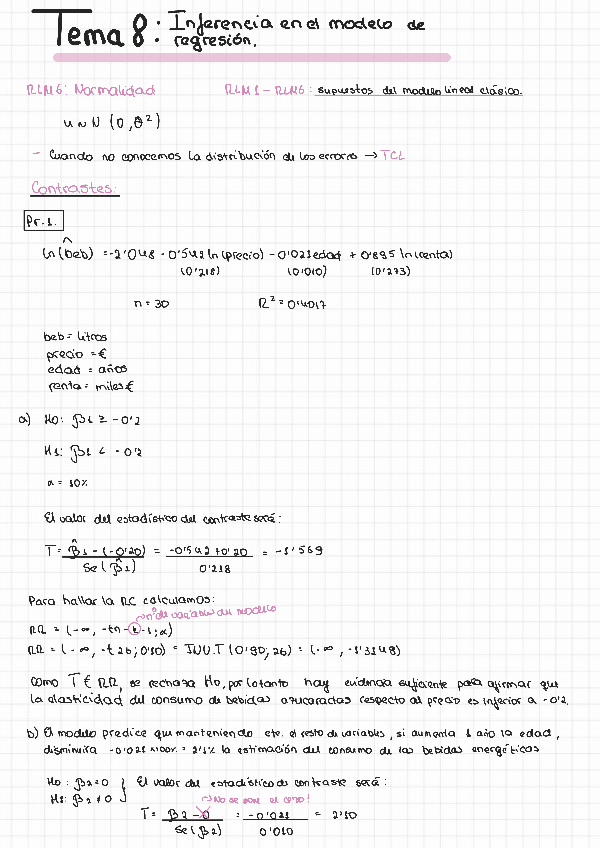 Tema 8: Inferencia en el modelo de
regresión.
RLM6: Normalidad
RLM1-RLM6: supuestos del modelo lineal clásico.
u ~ N (0, θ²)
- Cuando no conocemos la distribución de los errores → TCL
Contrastes:
Pr.1.
ln(beb)^ = -2'048 - 0'542 ln(precio) - 0'021 edad + 0'895 ln(renta)
(0'218) (0'010) (0'273)
n = 30 R² = 0'4017
beb = litros
precio = €
edad = años
renta = miles €
a) H0: β1 ≥ -0'2
H1: β1 < -0'2
α = 10%
El valor del estadístico del contraste será:
T = β̂1 - (-0'20) = -0'542 + 0'20 = -1'569
Se(β̂1) 0'218
Para hallar la RC calculamos:
→ nº de variables del modelo
RR = (-∞, -tn-k-1;α)
RR = (-∞, -t26; 0'10) = INV.T (0'90; 26) = (-∞, -1'3148)
Como T ∈ RR, se rechaza H0, por lo tanto hay evidencia suficiente para afirmar que
la elasticidad del consumo de bebidas azucaradas respecto al precio es inferior a -0'2.
b) El modelo predice que manteniendo cte. el resto de variables, si aumenta 1 año la edad,
disminuirá -0'021 × 100% = 2'1% la estimación del consumo de las bebidas energéticas
H0: β2 = 0 } El valor del estadístico de contraste será:
H1: β2 ≠ 0
→ No se pone el cero!
T = β2 - 0 = -0'021 = 2'10
Se(β2) 0'010